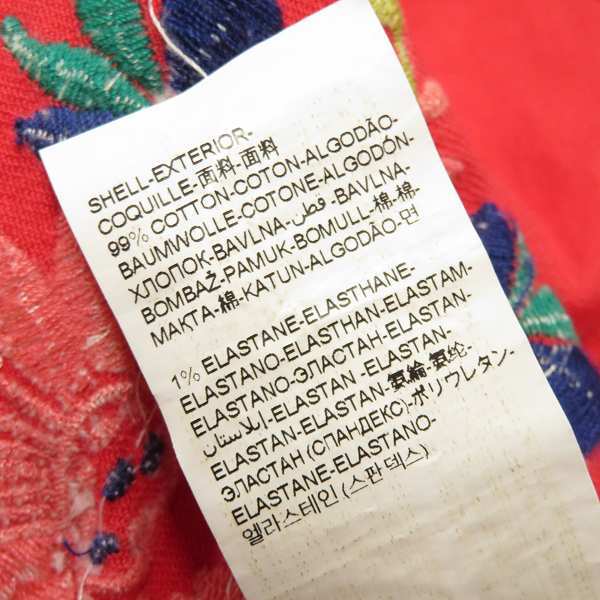 SHELL-EXTERIOR-
COQUILLE-面料-面料
99% COTTON-COTON-ALGODÃO-
BAUMWOLLE-COTONE-ALGODÓN-
ХЛОПОК-BAVLNA-قطن-BAVLNA-
BOMBAŽ-PAMUK-BOMULL-棉-棉-
МАҚТА-綿-KATUN-ALGODÃO-면
1% ELASTANE-ELASTHANE-
ELASTANO-ELASTHAN-ELASTAM-
ELASTANO-ЭЛАСТАН-ELASTAN-
إيلاستان-ELASTAN -ELASTAN-
ELASTAN-ELASTAN-氨綸-氨纶-
ЭЛАСТАН (СПАНДЕКС)-ポリウレタン-
ELASTANE-ELASTANO-
엘라스테인 (스판덱스)